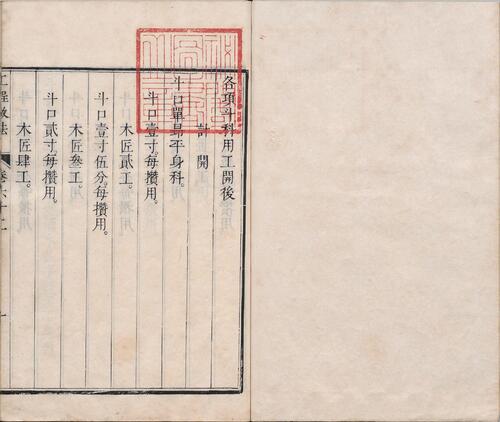 各項斗科用工開後
計開
斗口單昂平身科。
斗口壹寸。每攢用。
木匠貳工。
斗口壹寸伍分。每攢用。
木匠叁工。
斗口貳寸。每攢用。
木匠肆工。
工程做法
卷六十二
一